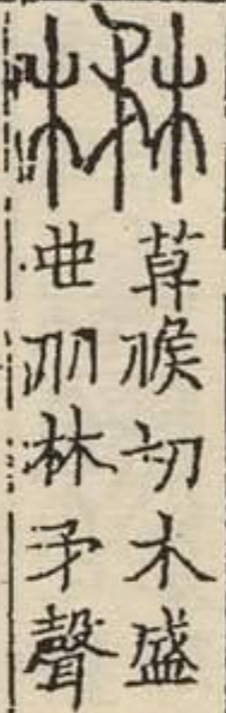 楙
莫候切木盛
也从林矛聲